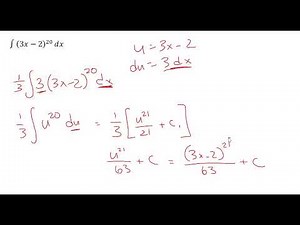 ∫ (3x − 2)²⁰ dx
u = 3x − 2
du = 3 dx
1/3 ∫ 3 (3x − 2)²⁰ dx
1/3 ∫ u²⁰ du = 1/3 [ u²¹/21 + C₁ ]
u²¹/63 + C = (3x − 2)²¹/63 + C